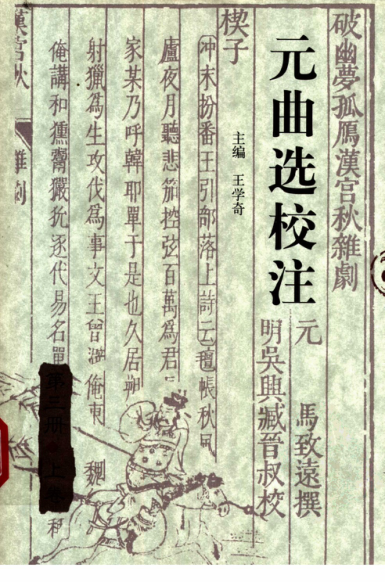 破幽夢孤鴈漢宮秋雜劇
元曲选校注
元 馬致遠撰
明吳興臧晉叔校
主编 王学奇
楔子
冲末扮番王引部落上詩云氊帳秋風
廬夜月聽悲笳控弦百萬爲君
家某乃呼韓耶單于是也久居朔
射獵爲生攻伐爲事文王曾避俺東 魏
俺講和獯鬻玁狁逐代易名單
漢宮秋
雜劇